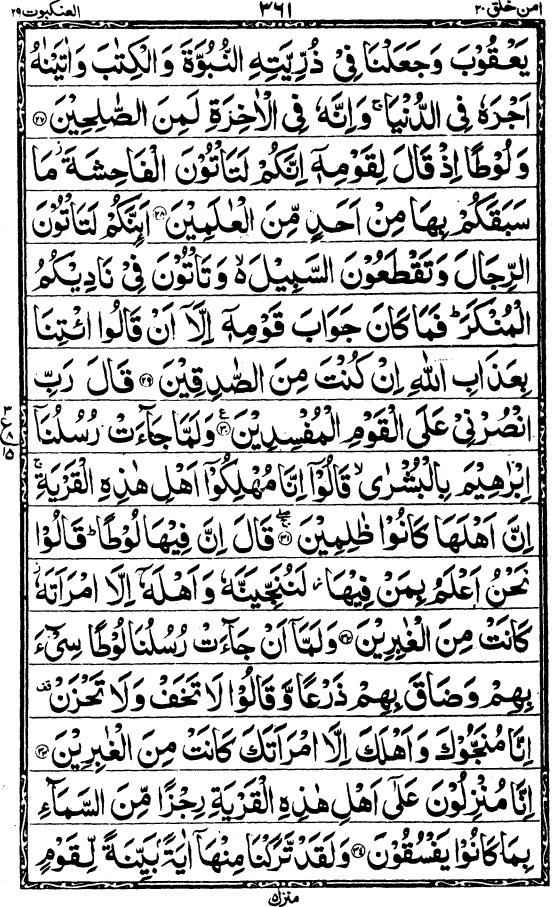 امن خلق ٢٠ ٣٦١ العنكبوت ٢٩
يَعْقُوْبَ وَجَعَلْنَا فِيْ ذُرِّيَّتِهِ النُّبُوَّةَ وَالْكِتٰبَ وَاٰتَيْنٰهُ
اَجْرَهٗ فِي الدُّنْيَا ۚ وَاِنَّهٗ فِي الْاٰخِرَةِ لَمِنَ الصّٰلِحِيْنَ ٢٧
وَلُوْطًا اِذْ قَالَ لِقَوْمِهٖٓ اِنَّكُمْ لَتَاْتُوْنَ الْفَاحِشَةَ ۡ مَا
سَبَقَكُمْ بِهَا مِنْ اَحَدٍ مِّنَ الْعٰلَمِيْنَ ٢٨ اَىِٕنَّكُمْ لَتَاْتُوْنَ
الرِّجَالَ وَتَقْطَعُوْنَ السَّبِيْلَ ۙ وَتَاْتُوْنَ فِيْ نَادِيْكُمُ
الْمُنْكَرَ ؕ فَمَا كَانَ جَوَابَ قَوْمِهٖٓ اِلَّآ اَنْ قَالُوا ائْتِنَا
بِعَذَابِ اللّٰهِ اِنْ كُنْتَ مِنَ الصّٰدِقِيْنَ ٢٩ قَالَ رَبِّ
انْصُرْنِيْ عَلَى الْقَوْمِ الْمُفْسِدِيْنَ ٣٠ ع وَلَمَّا جَآءَتْ رُسُلُنَآ
٣ ع ٨ ١٥
اِبْرٰهِيْمَ بِالْبُشْرٰى ۙ قَالُوْٓا اِنَّا مُهْلِكُوْٓا اَهْلِ هٰذِهِ الْقَرْيَةِ ۚ
اِنَّ اَهْلَهَا كَانُوْا ظٰلِمِيْنَ ٣١ قَالَ اِنَّ فِيْهَا لُوْطًا ؕ قَالُوْا
نَحْنُ اَعْلَمُ بِمَنْ فِيْهَا ۡ لَنُنَجِّيَنَّهٗ وَاَهْلَهٗٓ اِلَّا امْرَاَتَهٗ ۡ
كَانَتْ مِنَ الْغٰبِرِيْنَ ٣٢ وَلَمَّآ اَنْ جَآءَتْ رُسُلُنَا لُوْطًا سِيْٓءَ
بِهِمْ وَضَاقَ بِهِمْ ذَرْعًا وَّقَالُوْا لَا تَخَفْ وَلَا تَحْزَنْ قف
اِنَّا مُنَجُّوْكَ وَاَهْلَكَ اِلَّا امْرَاَتَكَ كَانَتْ مِنَ الْغٰبِرِيْنَ ٣٣
اِنَّا مُنْزِلُوْنَ عَلٰٓى اَهْلِ هٰذِهِ الْقَرْيَةِ رِجْزًا مِّنَ السَّمَآءِ
بِمَا كَانُوْا يَفْسُقُوْنَ ٣٤ وَلَقَدْ تَّرَكْنَا مِنْهَآ اٰيَةًۢ بَيِّنَةً لِّقَوْمٍ